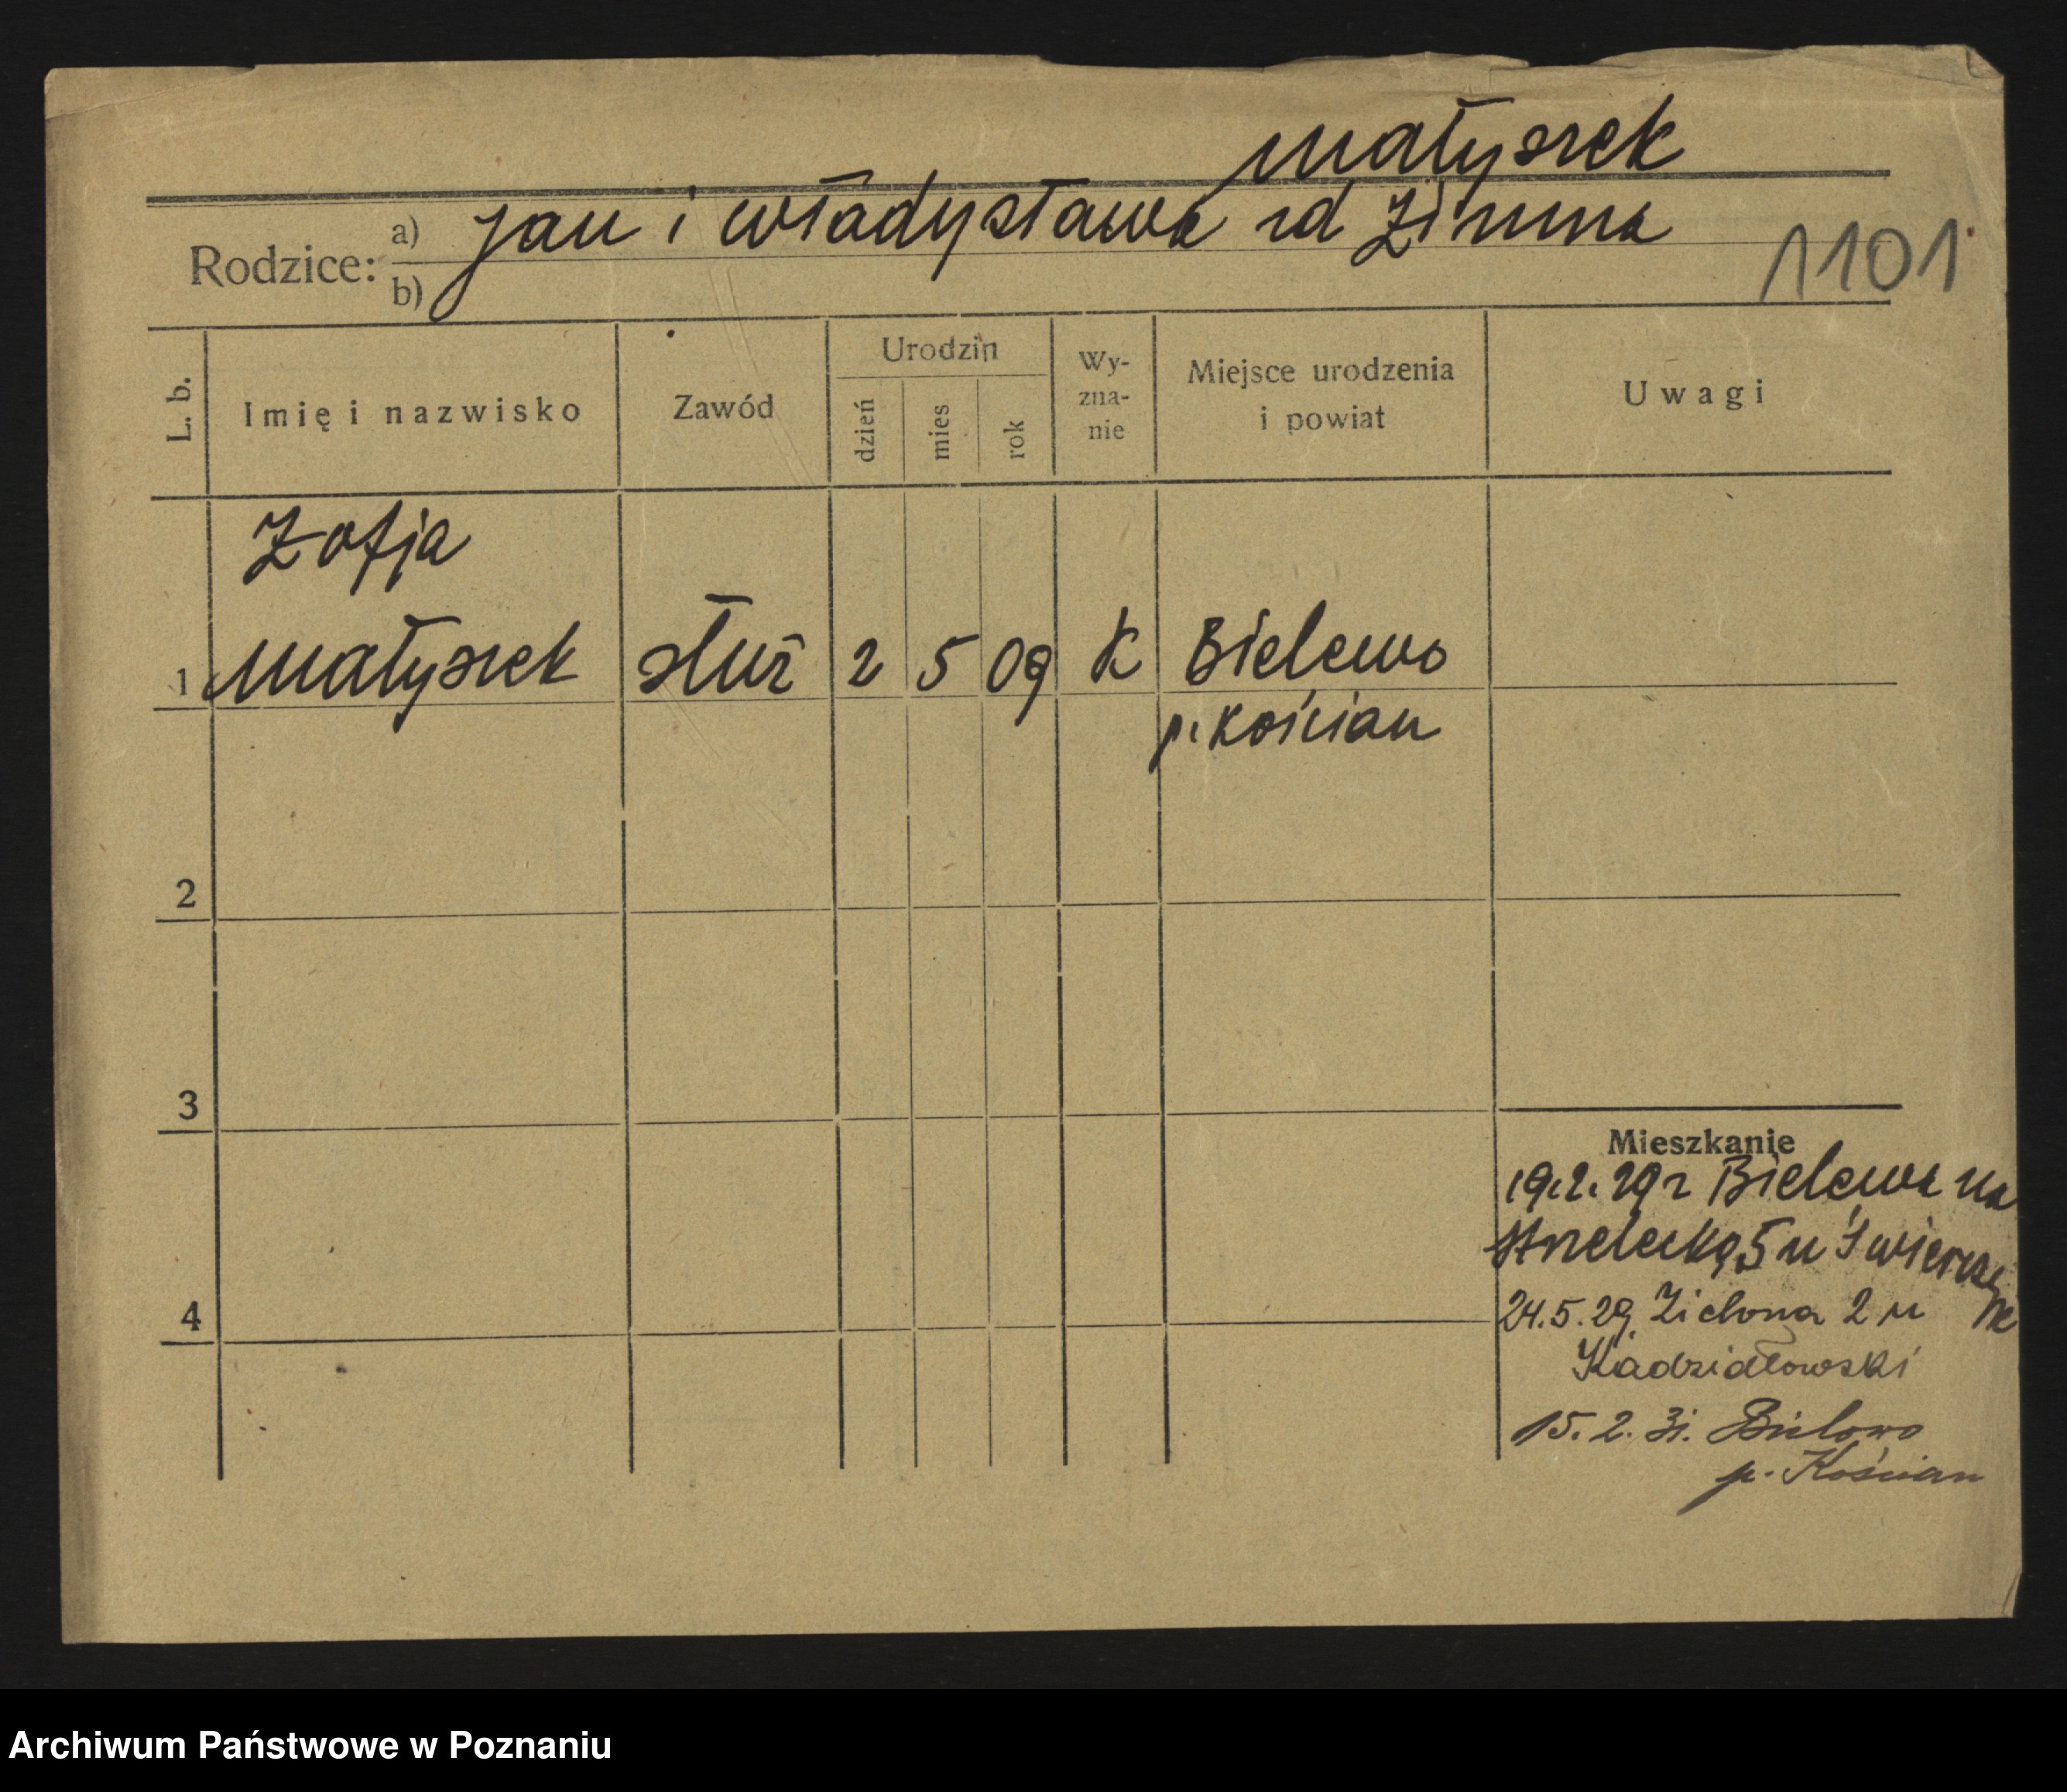 Małyszek
Rodzice: a) Jan i Władysława zd Zimna
b)
1101
L. b.
Imię i nazwisko
Zawód
Urodzin
dzień
mies
rok
Wy-
zna-
nie
Miejsce urodzenia
i powiat
Uwagi
Zofja
1 Małyszek służ 2 5 09 K Bielewo
p. Kościan
2
3
4
Mieszkanie
19.2.29r Bielewa na
Strzelecką 5 u
24.5.29. Zielona 2 u
Kadzidłowski
15.2.31. Bielewo
p. Kościan
Archiwum Państwowe w Poznaniu